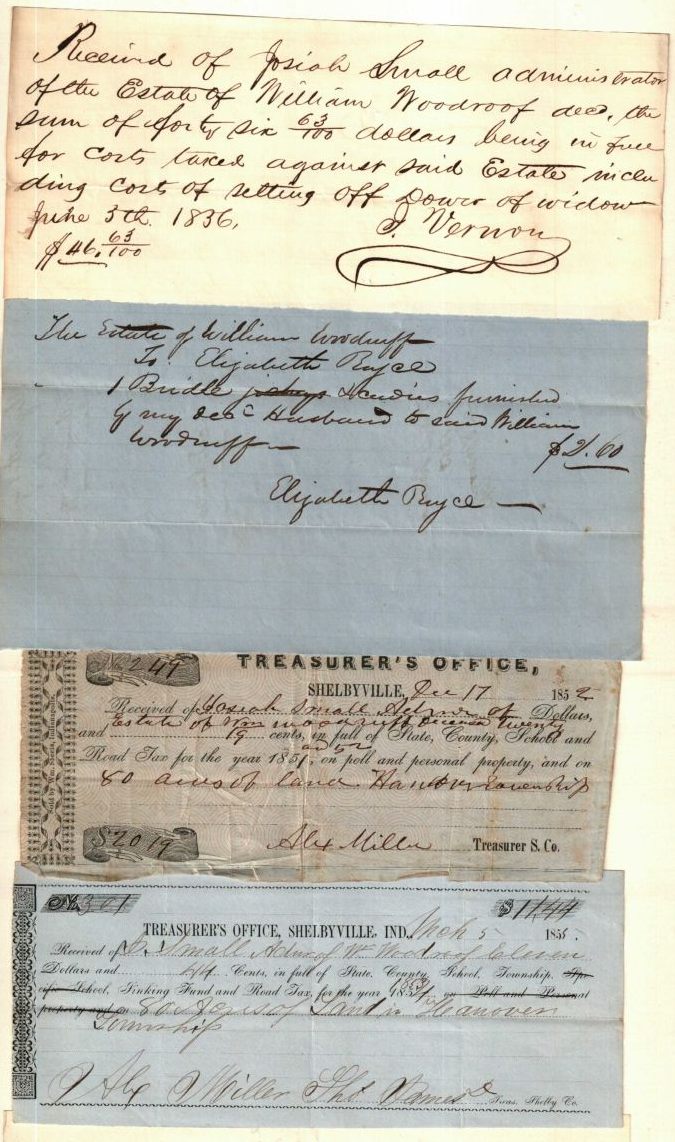 Received of Josiah Small administrator
of the Estate of William Woodroof decd, the
sum of forty six 63/100 dollars being in full
for costs taxed against said Estate inclu
ding costs of setting off Dower of widow
June 5th. 1836. J. Vernon
$46.63/100
The Estate of William Woodruff
To Elizabeth Royce
1 Bridle & furnished
by my decd Husband to said William
Woodruff $2.60
Elizabeth Royce
No 247 TREASURER'S OFFICE,
SHELBYVILLE, Dec 17 1852
Received of Josiah Small Admr of Dollars,
Estate of Wm woodruff Twenty
and 19 cents, in full of State, County, School and
and 52
Road Tax for the year 1851, on poll and personal property, and on
80 acres of land Hanover Township
$20 19 Alex Miller Treasurer S. Co.
Sold by Wm. Sheets, Indianapolis.
No. 301 $11,44
TREASURER'S OFFICE, SHELBYVILLE, IND., Mch 5 1855.
Received of J. Small Admr of Wm Woodruf Eleven
Dollars and 44 Cents, in full of State, County, School, Township, Spe-
cific School, Sinking Fund and Road Tax, for the year 1854, on Poll and Personal
property and on 80 acres of Land in Hanover
Township
Alex Miller Treas. Shelby Co.